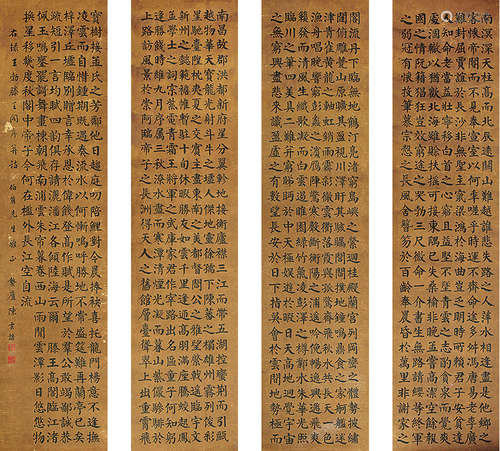 南昌故郡洪都新府星分翼軫地接衡廬襟三江而帶五湖控蠻荊而引甌
越物華天寶龍光射斗牛之墟人傑地靈徐孺下陳蕃之榻雄州霧列俊彩
星馳臺隍枕夷夏之交賓主盡東南之美都督閻公之雅望棨戟遙臨宇文
新州之懿範襜帷暫駐十旬休暇勝友如雲千里逢迎高朋滿座騰蛟起鳳
孟學士之詞宗紫電青霜王將軍之武庫家君作宰路出名區童子何知躬
逢勝餞時維九月序屬三秋潦水盡而寒潭清煙光凝而暮山紫儼驂騑於
上路訪風景於崇阿臨帝子之長洲得天人之舊館層臺聳翠上出重霄飛
閣流丹下臨無地鶴汀鳧渚窮島嶼之縈迴桂殿蘭宮列岡巒之體勢披繡
闥俯雕甍山原曠其盈視川澤盱其駭矚閭閻撲地鐘鳴鼎食之家舸艦迷
津青雀黃龍之軸虹銷雨霽彩徹雲衢落霞與孤鶩齊飛秋水共長天一色
漁舟唱晚響窮彭蠡之濱雁陣驚寒聲斷衡陽之浦遙吟俯暢逸興遄飛爽
籟發而清風生纖歌凝而白雲遏睢園綠竹氣凌彭澤之樽鄴水朱華光照
臨川之筆四美具二難并窮睇眄於中天極娛遊於暇日天高地迥覺宇宙
之無窮興盡悲來識盈虛之有數望長安於日下指吳會於雲間地勢極而
南溟深天柱高而北辰遠關山難越誰悲失路之人萍水相逢盡是他鄉之
客懷帝閽而不見奉宣室以何年嗟乎時運不齊命途多舛馮唐易老李廣
難封屈賈誼於長沙非無聖主竄梁鴻於海曲豈乏明時所賴君子安貧達
人知命老當益壯寧移白首之心窮且益堅不墜青雲之志酌貪泉而覺爽
處涸轍以猶歡北海雖賒扶搖可接東隅已逝桑榆非晚孟嘗高潔空餘報
國之情阮籍猖狂豈效窮途之哭勃三尺微命一介書生無路請纓等終軍
之弱冠有懷投筆慕宗愨之長風舍簪笏於百齡奉晨昏於萬里非謝家之
寶樹接孟氏之芳鄰他日趨庭叨陪鯉對今晨捧袂喜托龍門楊意不逢撫
凌雲而自惜鍾期既遇奏流水以何慚嗚呼勝地不常盛筵難再蘭亭已矣
梓澤丘墟臨別贈言幸承恩於偉餞登高作賦是所望於羣公敢竭鄙誠恭
疏短引一言均賦四韻俱成請灑潘江各傾陸海云爾 滕王高閣臨江渚
佩玉鳴鸞罷歌舞畫棟朝飛南浦雲朱簾暮捲西山雨閒雲潭影日悠悠物
換星移幾度秋閣中帝子今何在檻外長江空自流
右錄王勃滕王閣序并詩 先生 正 陳雲誥